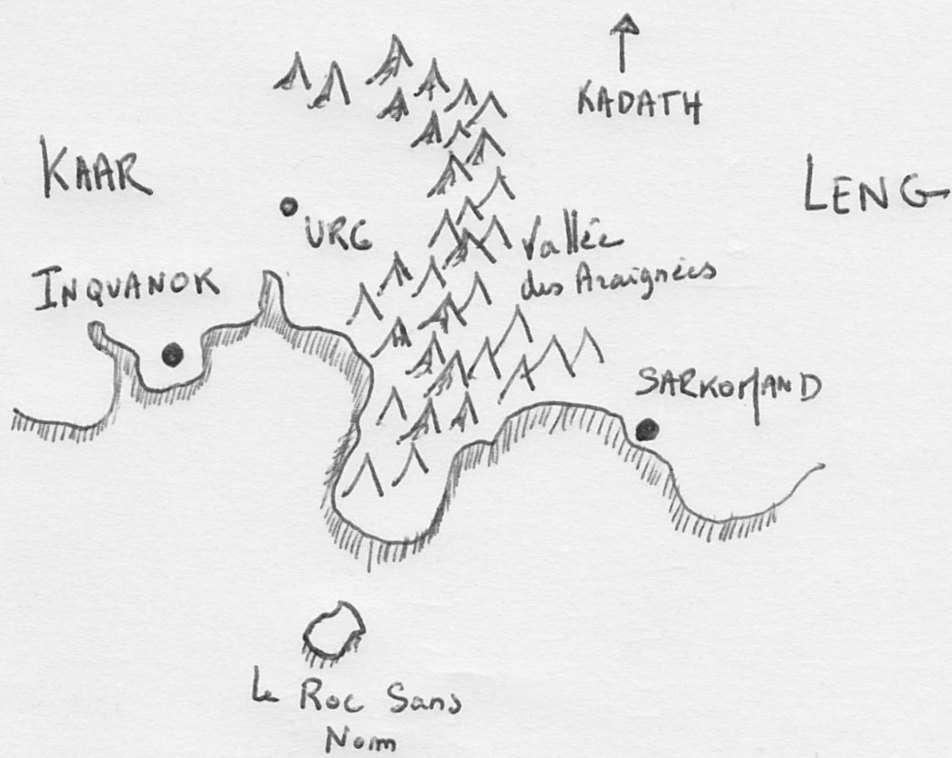 KADATH
KAAR
LENG
URG
Vallée
des Araignées
INQUANOK
SARKOMAND
Le Roc Sans
Nom